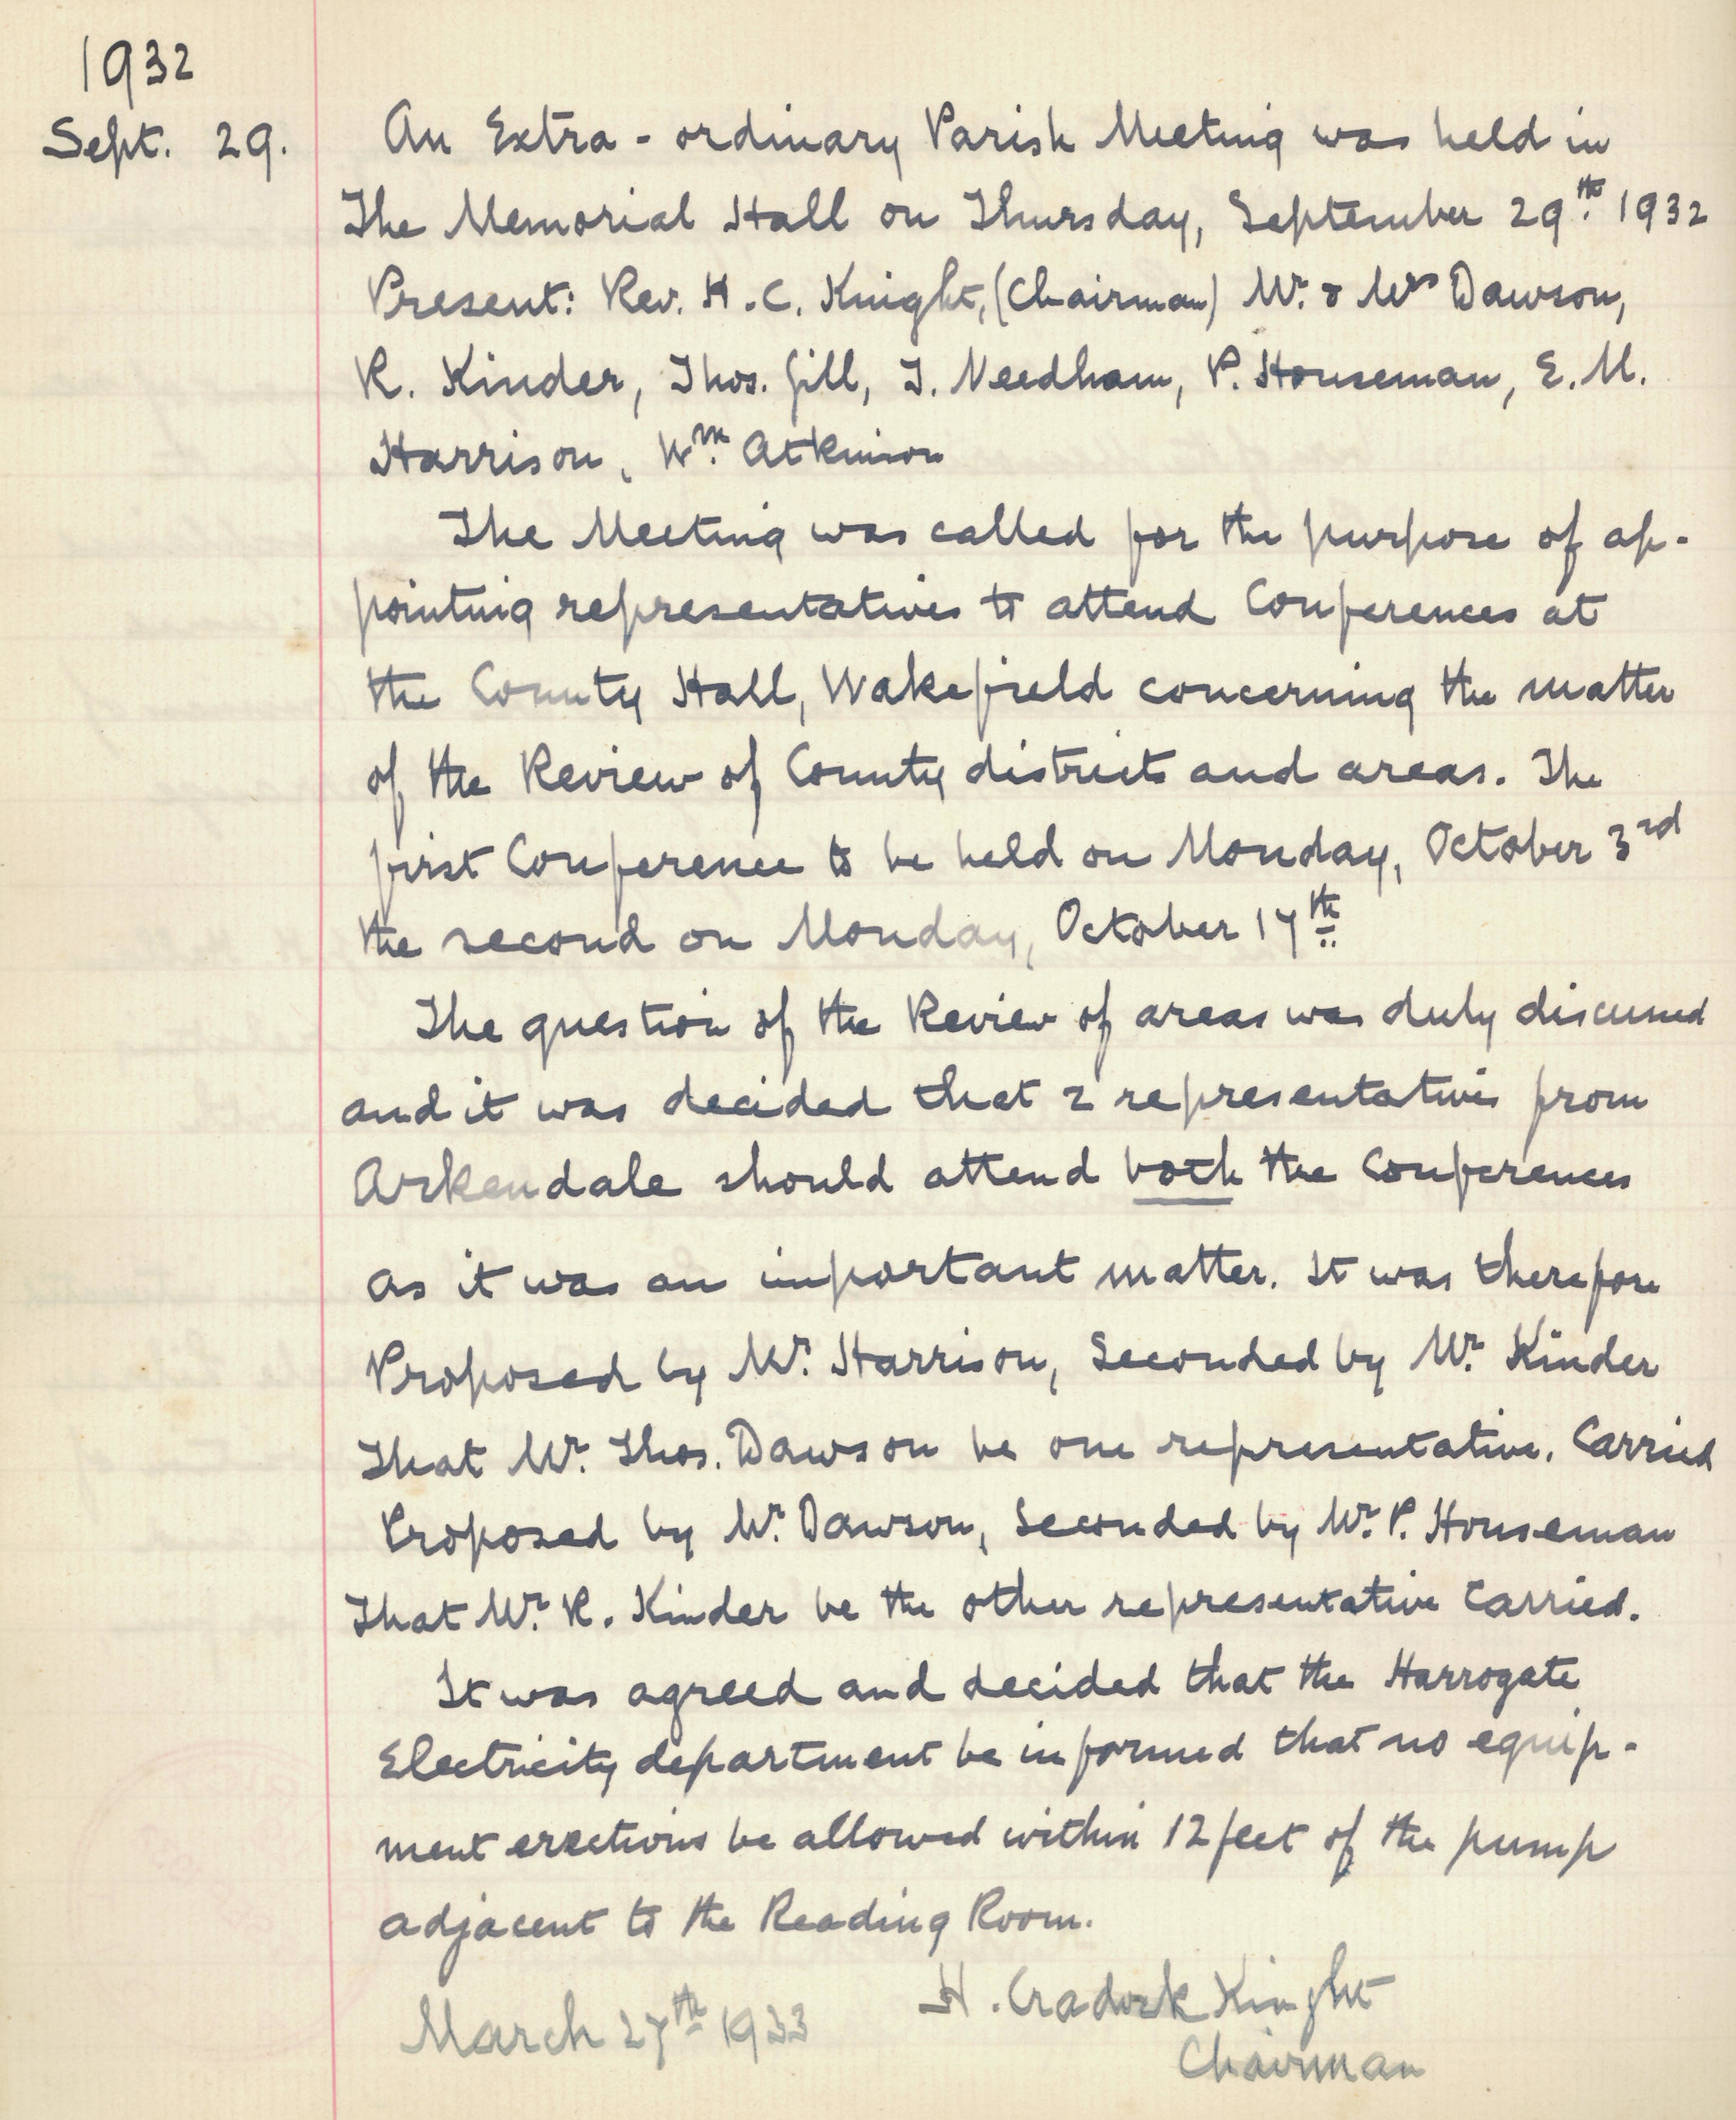 1932
Sept. 29.
An Extra-ordinary Parish Meeting was held in
The Memorial Hall on Thursday, September 29th. 1932
Present: Rev. H.C. Knight, (Chairman) Mr. & Mrs Dawson,
R. Kinder, Thos. Gill, T. Needham, P. Houseman, E.M.
Harrison, Wm. Atkinson
The Meeting was called for the purpose of ap-
pointing representatives to attend Conferences at
the County Hall, Wakefield concerning the matter
of the Review of County districts and areas. The
first Conference to be held on Monday, October 3rd
the second on Monday, October 17th
The question of the Review of areas was duly discussed
and it was decided that 2 representatives from
Arkendale should attend both the Conferences
as it was an important matter. It was therefore
Proposed by Mr. Harrison, Seconded by Mr. Kinder
That Mr. Thos. Dawson be one representative. Carried
Proposed by Mr. Dawson, Seconded by Mr. P. Houseman
That Mr. R. Kinder be the other representative Carried.
It was agreed and decided that the Harrogate
Electricity department be informed that no equip-
ment erections be allowed within 12 feet of the pump
adjacent to the Reading Room.
H. Cradock Knight
March 27th 1933
Chairman